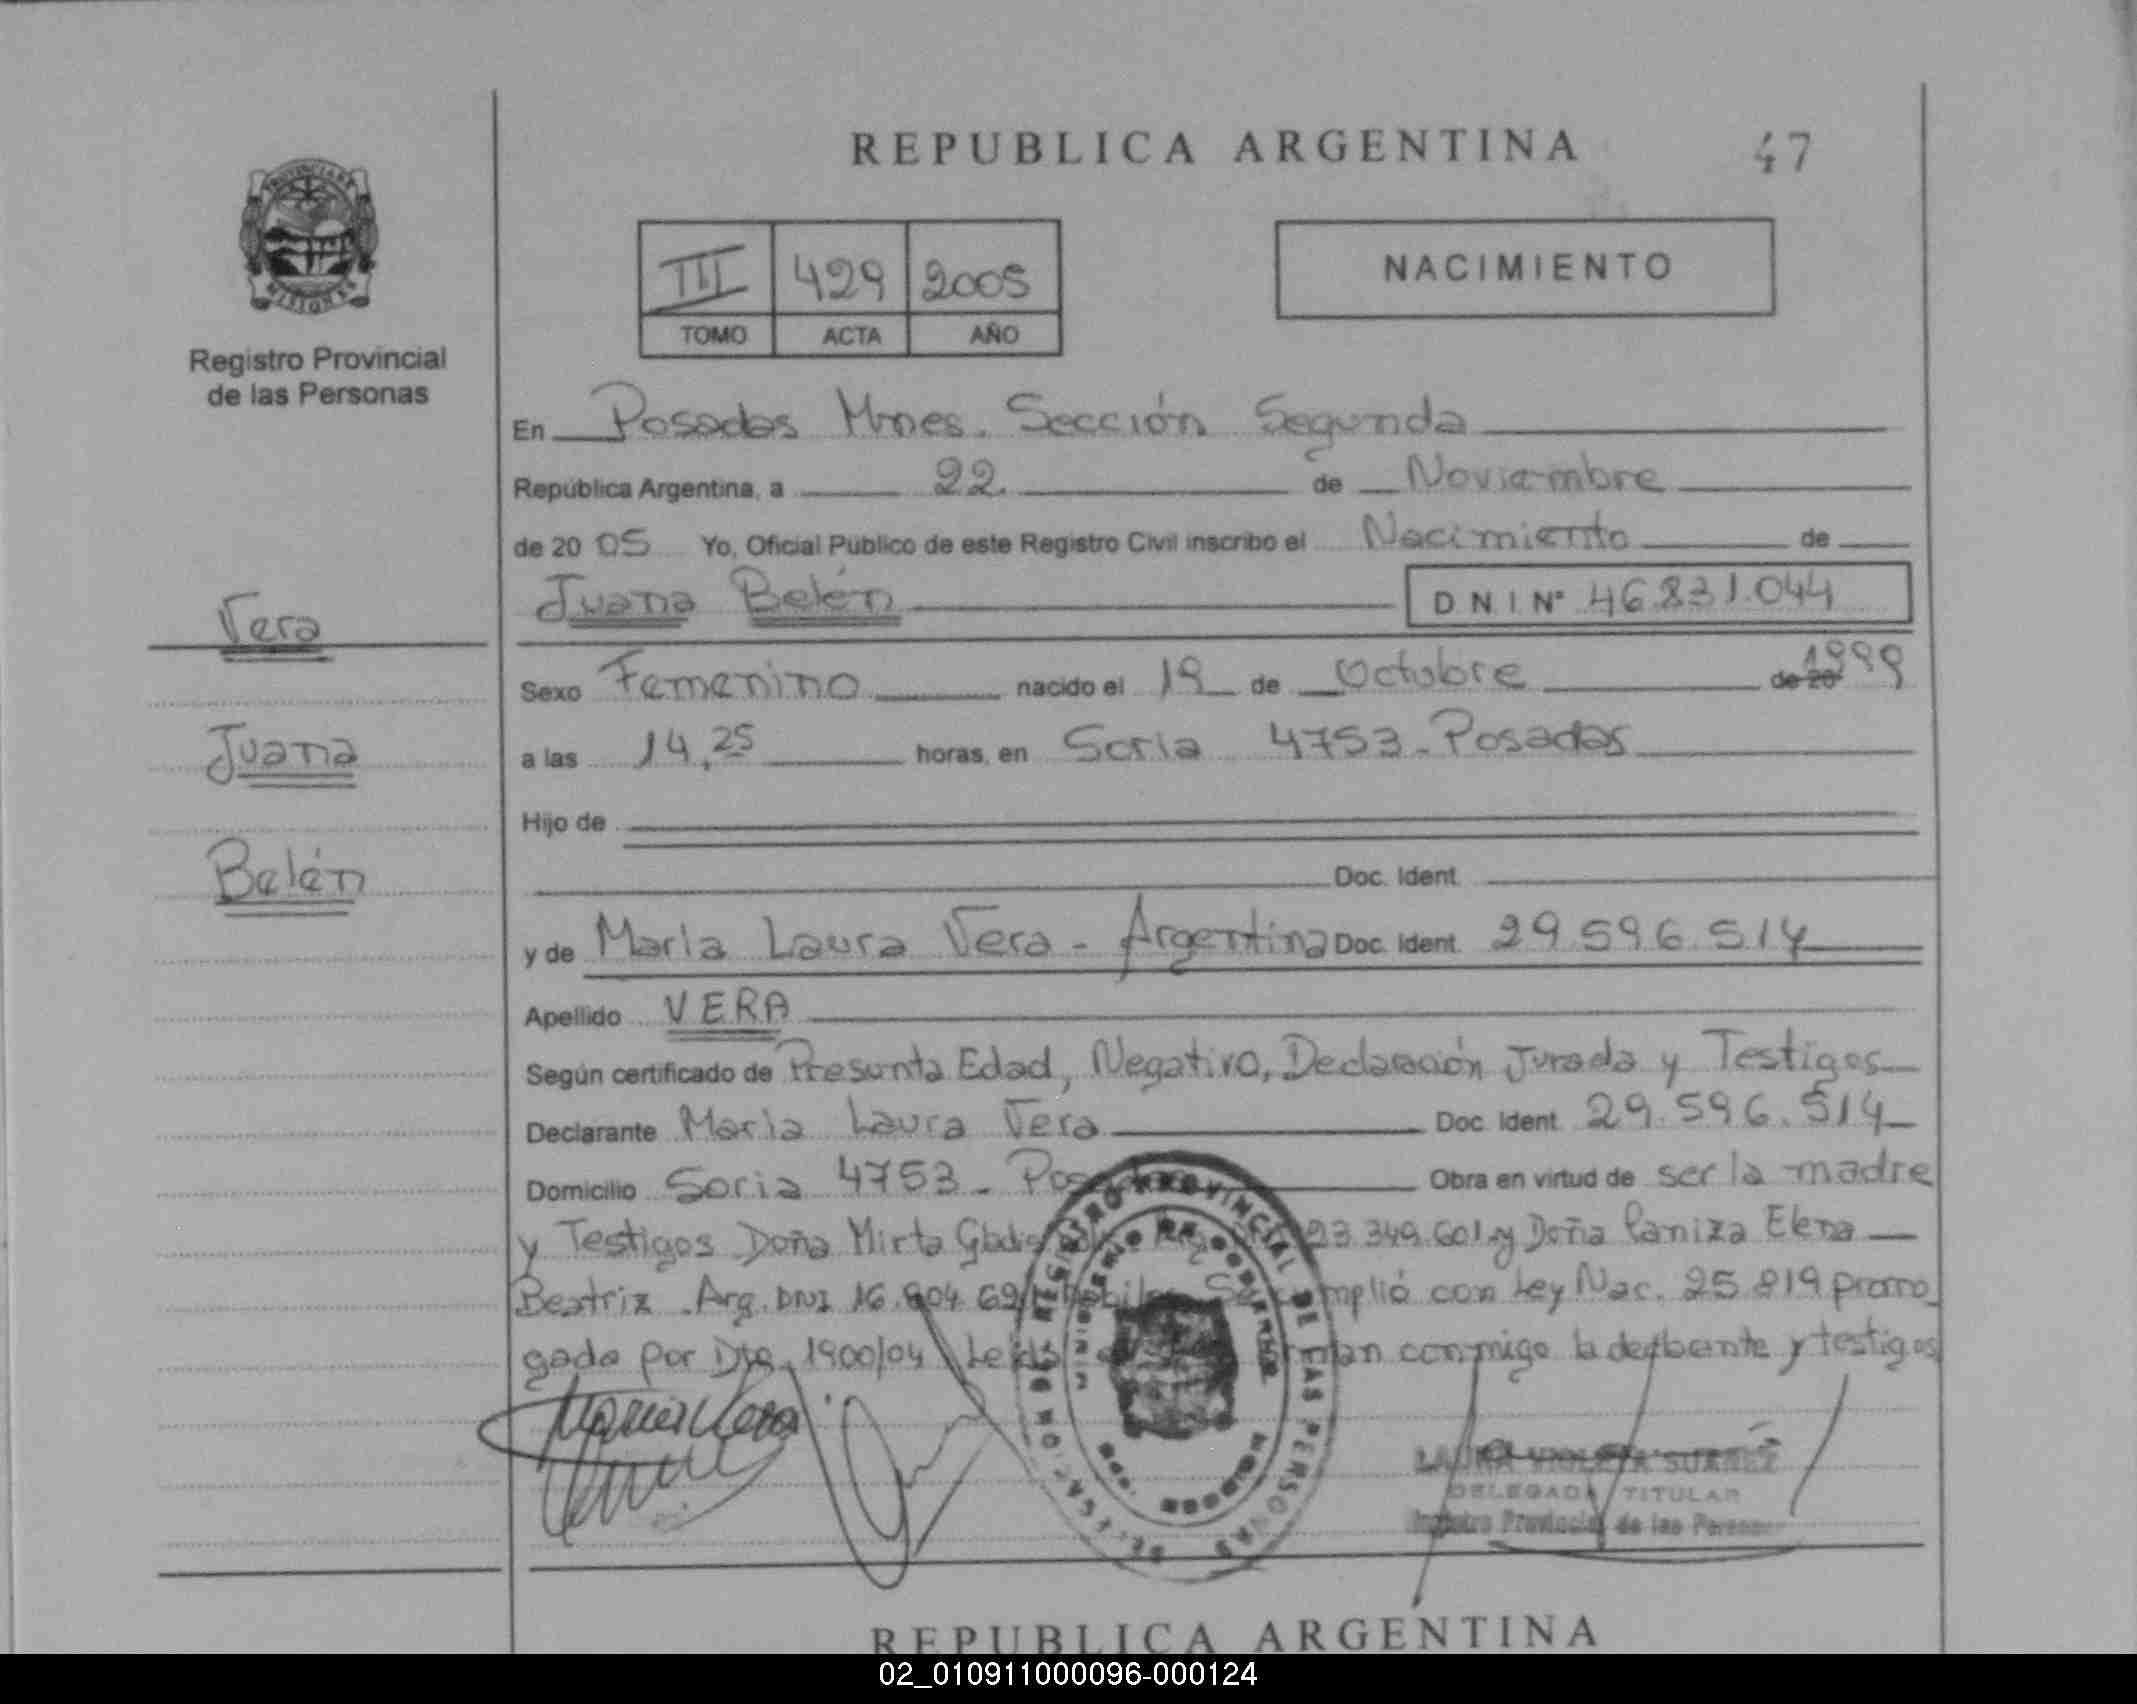 REPUBLICA ARGENTINA
47
III 429 2005
TOMO ACTA AÑO
NACIMIENTO
Registro Provincial
de las Personas
En Posadas Mnes. Sección Segunda
República Argentina, a 22 de Noviembre
de 20 05 Yo, Oficial Público de este Registro Civil inscribo el Nacimiento de
Juana Belén D N I Nº 46.831.044
Vera
Juana
Belén
Sexo Femenino nacido el 19 de Octubre de 20 1999
a las 14,25 horas, en Soria 4753 - Posadas
Hijo de
Doc. Ident.
y de María Laura Vera - Argentina Doc. Ident. 29.596.514
Apellido VERA
Según certificado de Presunta Edad, Negativo, Declaración Jurada y Testigos
Declarante María Laura Vera Doc. Ident. 29.596.514
Domicilio Soria 4753 - Obra en virtud de ser la madre
y Testigos Doña Mirta Gladis 23.349.601 y Doña Paniza Elena
Beatriz Arg. DNI con Ley Nac. 25.819 prorro
gada por Dto. 1900/04 conmigo la declarante y testigos
REGISTRO PROVINCIAL DE LAS PERSONAS
LAURA VIOLETA SUAREZ
DELEGADA TITULAR
Registro Provincial de las Personas
REPUBLICA ARGENTINA
02_010911000096-000124